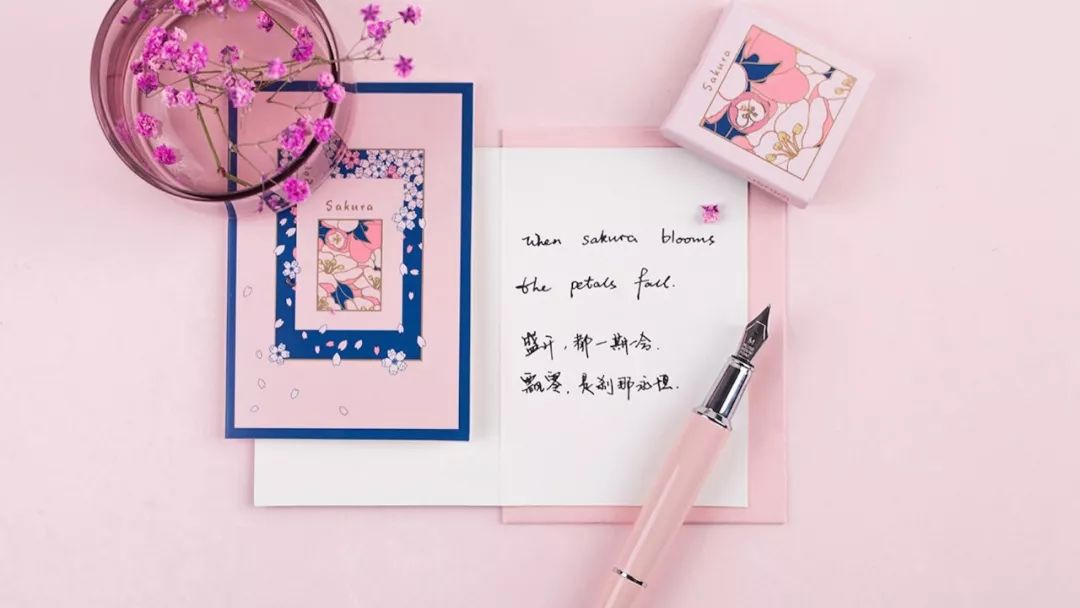 Sakura
Sakura
When sakura blooms
the petals fall.
盛开,都一期一会.
飘零,是刹那永恒.
M